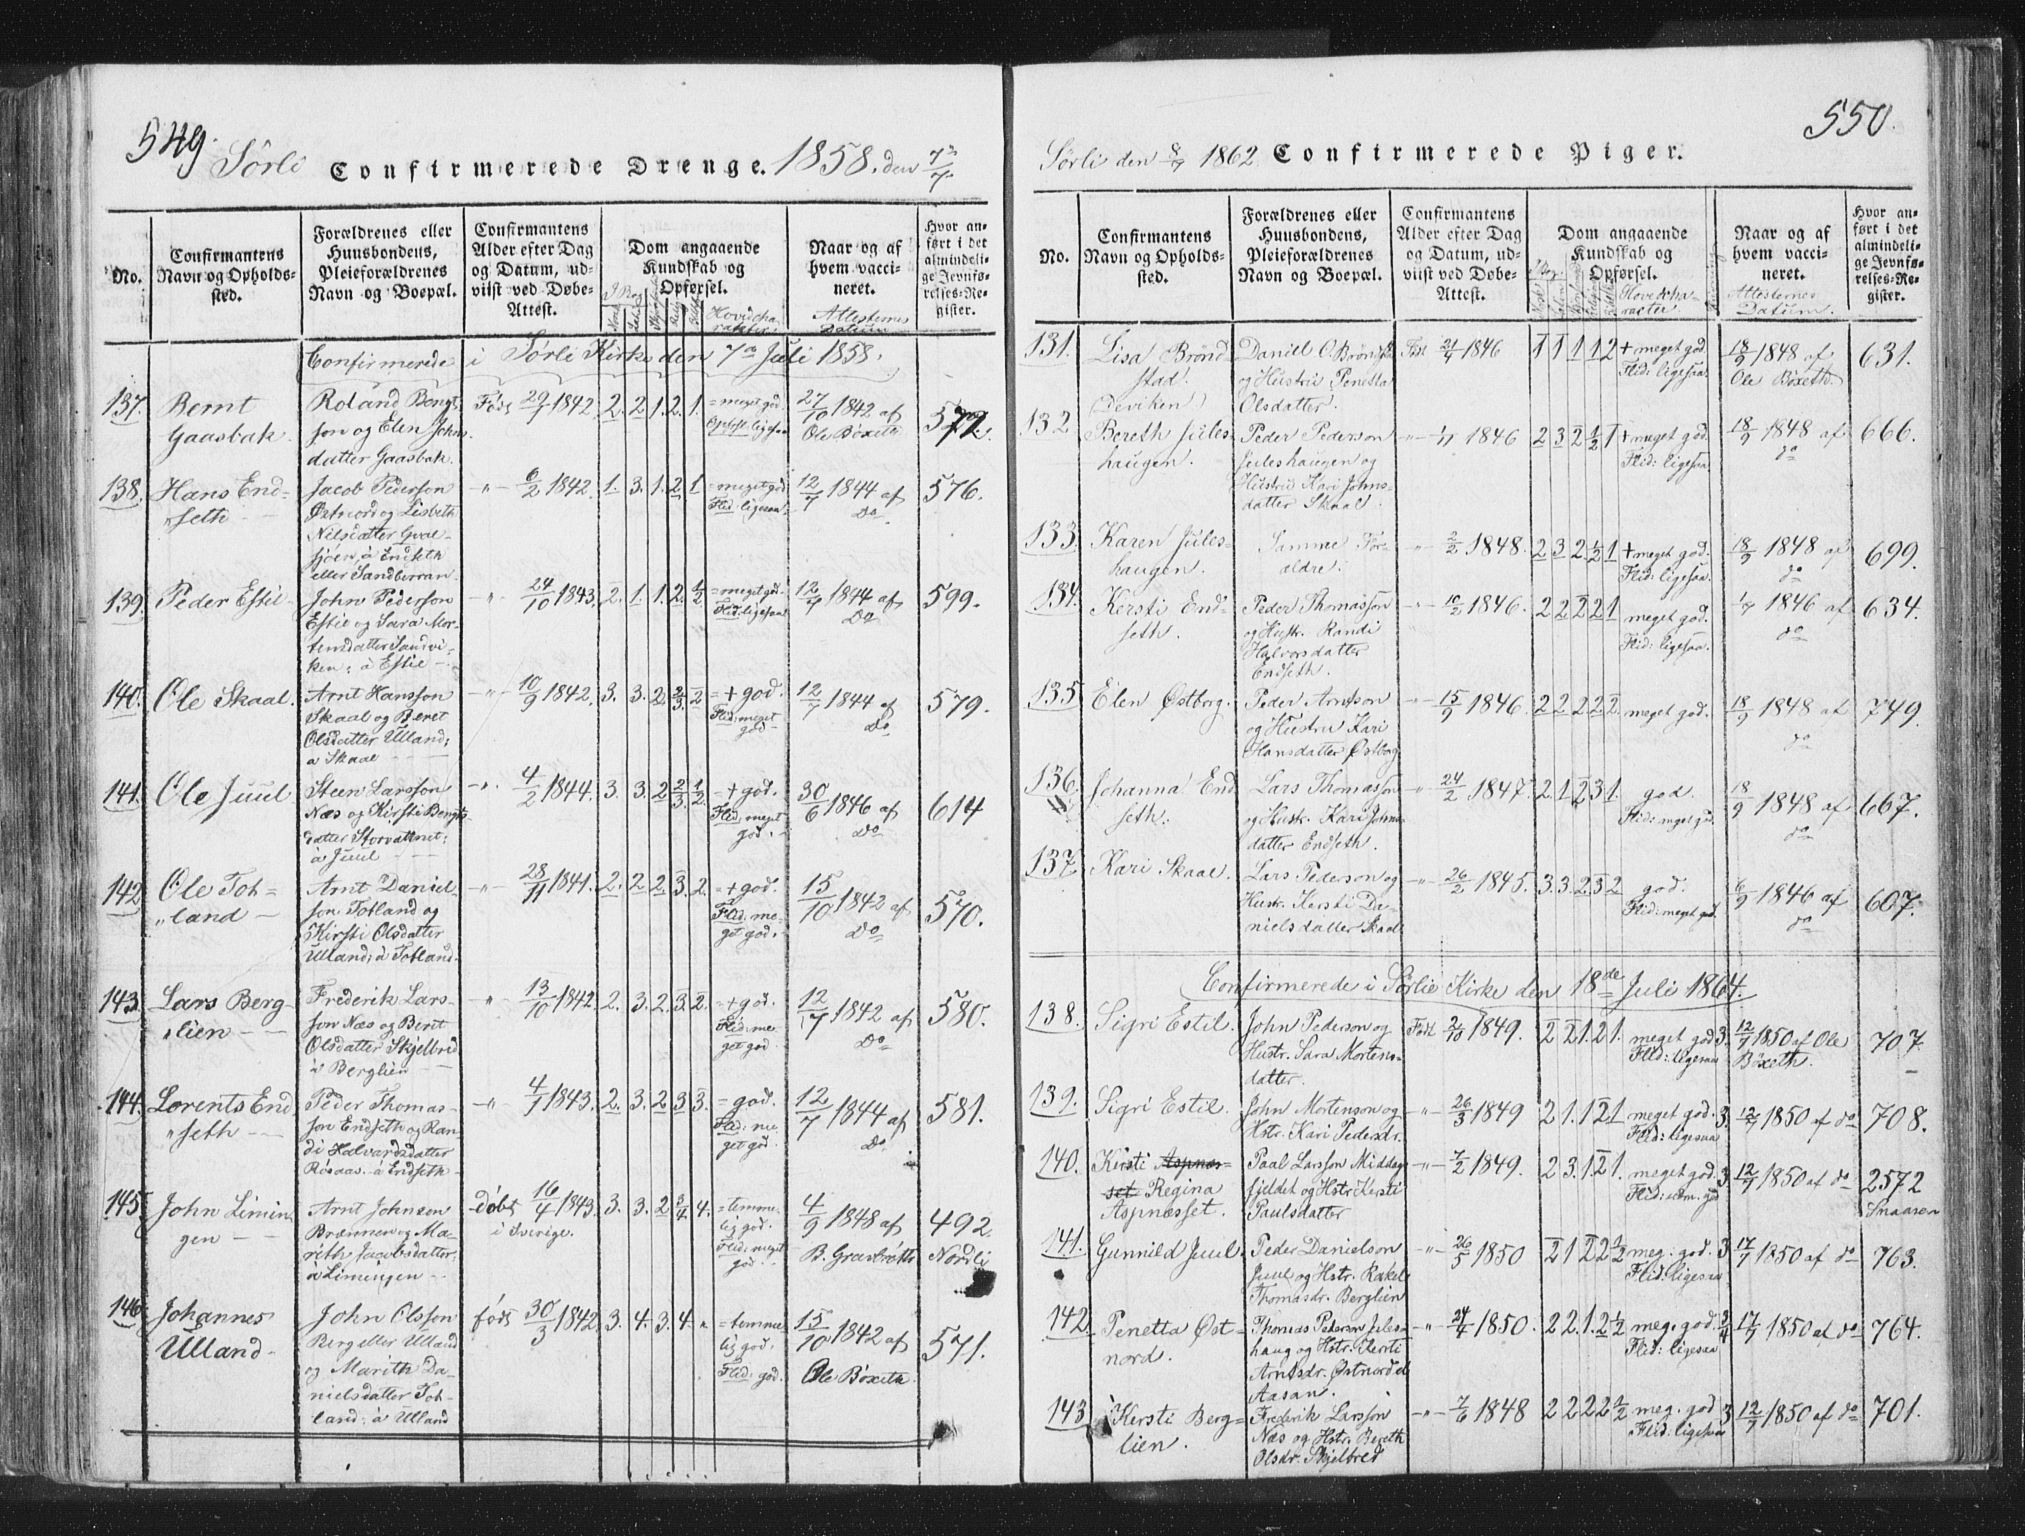 549.
Sörli Confirmerede Drenge. 1858. den 7/7
No.
Confirmantens Navn og Opholdssted.
Forældrenes eller Huusbondens, Pleieforældrenes Navn og Boepæl.
Confirmantens Alder efter Dag og Datum, udviist ved Døbe-Attest.
Dom angaaende Kundskab og Opførsel.
Hovedcharakter
Naar og af hvem vaccineret.
Attesternes Datum
Hvor anført i det almindelige Jevnførelses-Register.
Confirmerede i Sörli Kirke den 7de Juli 1858.
137. Bernt Gaasbak. Roland Bengtson og Elen Johnsdatter Gaasbak. Født 29/7 1842. 2. 2. 1. 2. 1. = meget god. Opførs. ligesaa 27/10 1842 af Ole Böxeth 572.
138. Hans Endseth Jacob Pederson Østnord og Lisbeth Nilsdatter Qvæl- sjoen, à Endseth eller Sandberran. -"- 6/2 1842. 1. 3. 1. 2. 1. = meget god Flid: ligesaa. 12/7 1844 af Do 576.
139. Peder Estil John Pederson Estil og Sara Mortensdatter Sandviken; à Estil -"- 24/10 1843. 2. 1. 1. 2. 1/2 = meget god. Flid: ligesaa 12/7 1844 af Do 599.
140. Ole Skaal. Arnt Hansson Skaal og Beret Olsdatter Ulland; à Skaal -"- 10/9 1842. 3. 3. 2. 2/3. 2 = + god. Flid: meget god 12/7 1844 af Do 579.
141. Ole Juul Steen Larsson Næs og Kirsti Bengtsdatter Storvattnet; à Juul -"- 4/2 1844. 3. 3. 2 2/3. 1/2. = + god. Flid: meget god. 30/6 1846 af Do 614
142. Ole Totland Arnt Danielson Totland og Kirsti Olsdatter Ulland; à Totland. -"- 28/11 1841. 2. 2 2. 3. 2. = + god. Flid: meget god. 15/10 1842 af Do 570.
143. Lars Berglien Frederik Larsson Næs og Berit Olsdatter Skjelbred à Berglien -"- 13/10 1842. 2. 3. 2. 3. 2. = + god. Flid: meget god 12/7 1842 af Do 580.
144. Lorents Endseth Peder Thomasson Endseth og Randi Halvardsdatter Rösaas. à Endseth -"- 4/7 1843. 2. 3. 2 3 3. = god. Flid: meget god. 12/7 1844 af Do 581.
145. John Limingen Arnt Johnson Brænnen og Mareth Jacobsdatter, à Limingen döbt 16/4 1843. i Sverige. 3. 3. 2 3/4. 4. = temmelig god. Flid: meget god. 4/9 1848 af B. Grasbröth 492. Nordli
146. Johannes Ulland John Olsson Berg eller Ulland og Marith Danielsdatter Totland; à Ulland født 30/3 1842. 3. 4. 3. 4. " = temmelig god. Flid: god. 15/10 1842 af Ole Böxeth. 571.
550.
Sörli den 8/7 1862. Confirmerede Piger.
No.
Confirmantens Navn og Opholdssted.
Forældrenes eller Huusbondens, Pleieforældrenes Navn og Boepæl.
Confirmantens Alder efter Dag og Datum, udviist ved Døbe-Attest.
Dom angaaende Kundskab og Opførsel.
Hovedcharacter
Naar og af hvem vaccineret.
Attesternes Datum.
Hvor anført i det almindelige Jevnførelses-Register.
131. Lisa Bröndstad. (Deviken) Daniel O. Bröndstad og Hustru Penetta Olsdatter. Født 21/4 1846 1 1 1 1 2 + meget god. Flid: ligesaa. 18/9 1848 af Ole Böxeth. 631.
132. Bereth Juleshaugen. Peder Pederson Juleshaugen og Hustru Kari Johnsdatter Skaal. -"- 1846 2 3 2 1/2 1 + meget god. Flid: ligesaa 18/9 1848 af do 666.
133. Karen Juleshaugen. Samme Forældre. -"- 2/2 1848. 2 3 2 1/2 1 + meget god. Flid: ligesaa. 18/9 1848 af do 699.
134. Kersti Endseth. Peder Thomasson og Hustr. Randi Halvorsdatter Endseth. -"- 10/2 1846. 2 2 2 2 1 meget god. Flid: ligesaa. 1846 af do 634.
135. Elen Østborg. Peder Arntson og Hustru Kari Hansdatter Østborg -"- 15/9 1846. 2 2 2 2 2. meget god. 18/9 1848 af do 749.
136. Johanna Endseth. Lars Thomasson og Hustr. Kari Johnsdatter Endseth. -"- 24/2 1847. 2. 1. 2 3 1. god. Flid: meget god. 18/9 1848 af do 667.
137. Kari Skaal. Lars Pederson og Hustr. Kersti Danielsdatter Skaal -"- 26/2 1845. 3. 3. 2. 3 2 god. Flid: meget god. 6/9 1846 af do 607.
Confirmerede i Sörlie Kirke den 18de Juli 1864.
138. Sigri Estil. John Pederson og Hustr. Sara Mortensdatter. Født 2/10 1849. 2 2 1. 2 1. meget god 3. Flid: ligesaa 12/7 1850 af Ole Böxeth. 707.
139. Sigri Estil. John Mortenson og Hstr. Kari Pedersdr. -"- 26/3 1849 2 1. 1 2 1 meget god. 3. Flid: ligesaa 12/7 1850 af do 708.
140. Kersti Aspnesset Regina Aspnæsset. Paal Larsson Middagsfjeldet og Hstr. Kersti Paulsdatter -"- 7/2 1849. 2 3. 1. 2 1. meget god 3 12/7 1850 af do 2572 Snaasen
141. Gunnild Juul. Peder Danielson Juul og Hstr. Rakel Thomasdr. Berglien -"- 26/5 1850 2 1 2 2 1/2 meg. god. 3 Flid: ligesaa 17/7 1850 af do 763.
142. Penetta Østnord. Thomas Pederson Juleshaug og Hstr. Kersti Arntsdr. Østnord el Aasan. -"- 24/4 1850. 2 2 1. 2 1/2 meg. god. 3/4 Flid: ligesaa 17/7 1850 af do 764.
143 Kersti Berglien. Frederik Larsson Næs og Hstr. Bereth Olsdr. Skjelbred -"- 7/6 1848 2 2 2 2 1/2 meg. god 3 Flid: ligesaa 12/7 1850 af do 701.